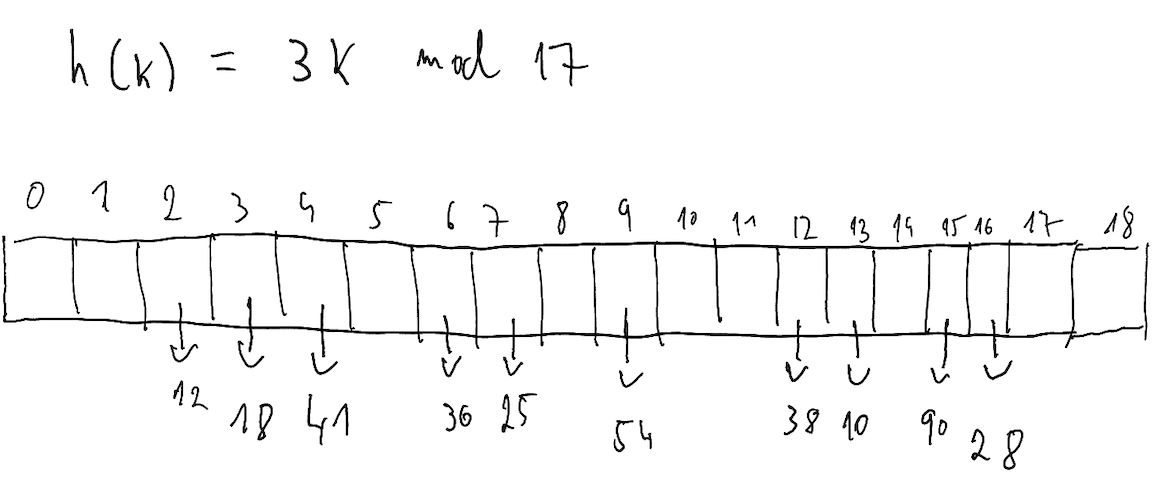 h(k) = 3k mod 17
0 1 2 3 4 5 6 7 8 9 10 11 12 13 14 15 16 17 18
12 18 41 36 25 54 38 10 90 28